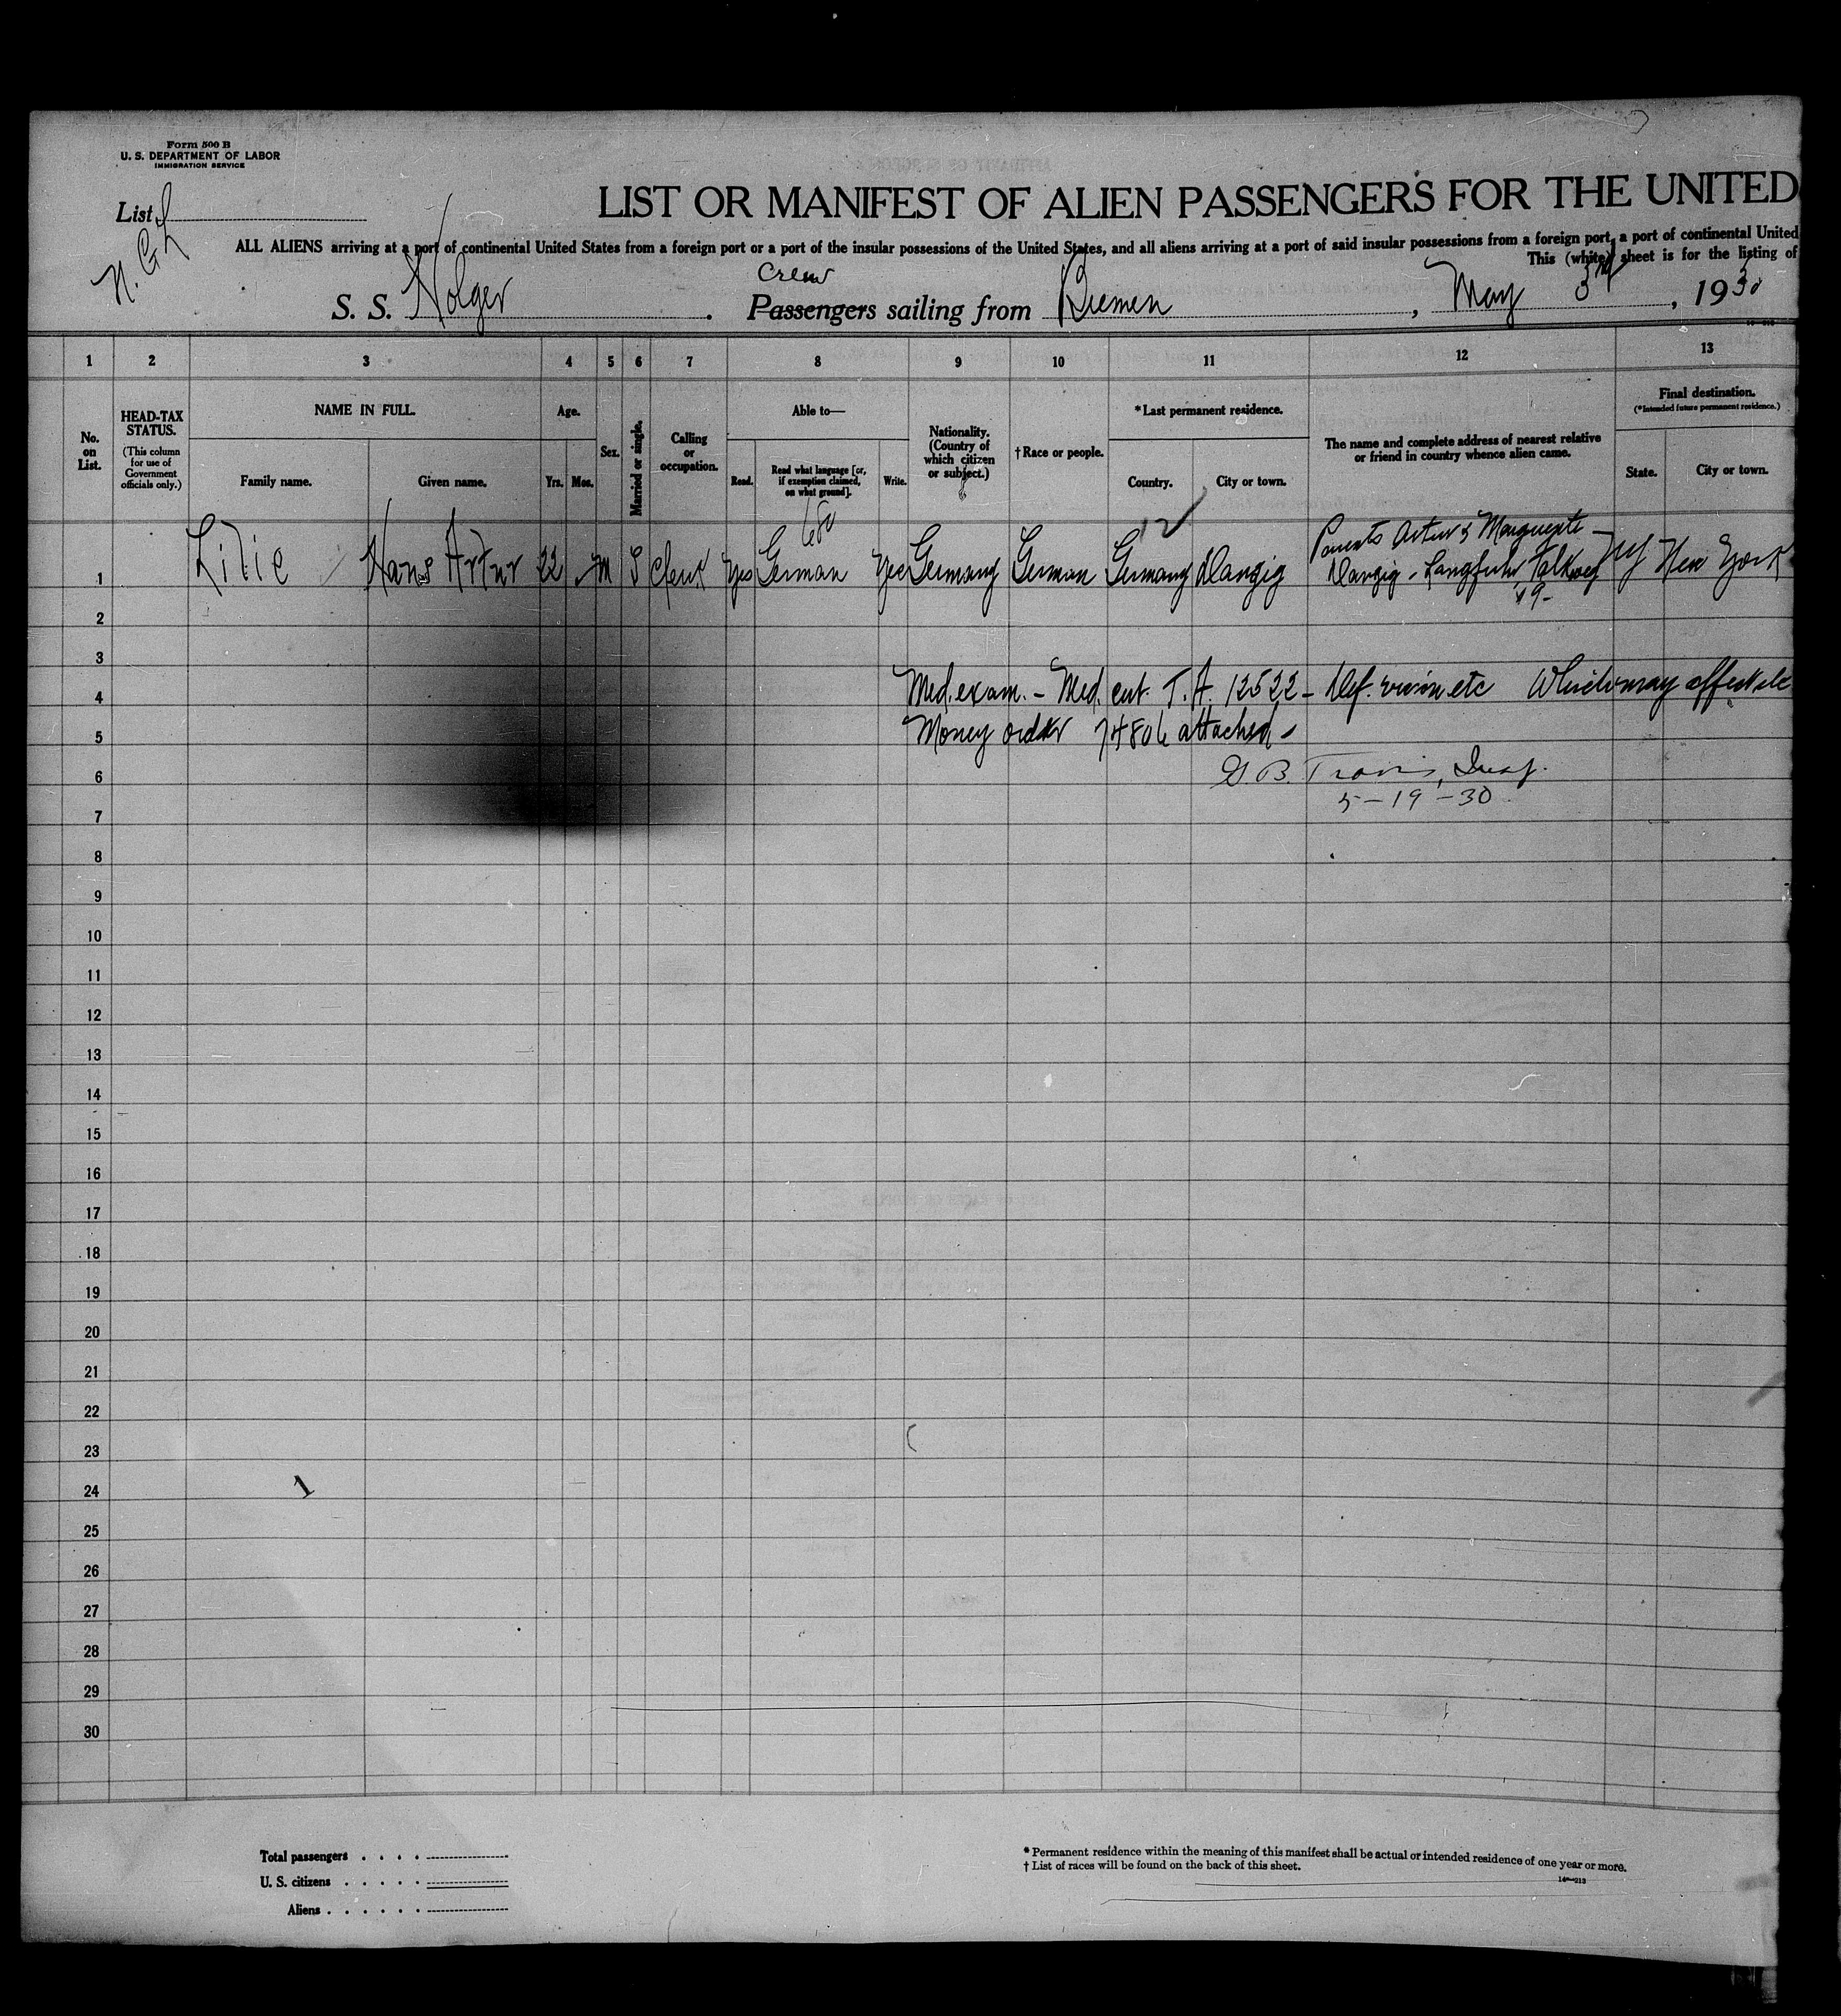 Form 500 B
U. S. DEPARTMENT OF LABOR
IMMIGRATION SERVICE
List
N. G. L
LIST OR MANIFEST OF ALIEN PASSENGERS FOR THE UNITED
ALL ALIENS arriving at a port of continental United States from a foreign port or a port of the insular possessions of the United States, and all aliens arriving at a port of said insular possessions from a foreign port, a port of continental United
This (white) sheet is for the listing of
Crew
S. S. Holger. Passengers sailing from Bremen, May 3rd, 1930
1 2 3 4 5 6 7 8 9 10 11 12 13
No. on List.
HEAD-TAX STATUS.
(This column for use of Government officials only.)
NAME IN FULL.
Family name. Given name.
Age.
Yrs. Mos.
Sex.
Married or single.
Calling or occupation.
Able to—
Read. Read what language [or, if exemption claimed, on what ground]. Write.
Nationality. (Country of which citizen or subject.)
† Race or people.
* Last permanent residence.
Country. City or town.
The name and complete address of nearest relative or friend in country whence alien came.
Final destination.
(* Intended future permanent residence.)
State. City or town.
12 ✓
Parents Artur & Marguerite -
1 Lilie Hans Artur 22 M S Clerk Yes German Yes Germany German Germany Danzig Danzig - Langfuhr, Falkweg NY New York
19-
2
3
4 Med. exam. - Med. cert. T. A. 12522 - Def. vision etc Which may affect
5 Money order 74806 attached -
6 G. B. Travis, Insp.
5-19-30
7
8
9
10
11
12
13
14
15
16
17
18
19
20
21
22
23
24
1
25
26
27
28
29
30
Total passengers . . . .
U. S. citizens . . . . .
Aliens . . . . . .
* Permanent residence within the meaning of this manifest shall be actual or intended residence of one year or more.
† List of races will be found on the back of this sheet.
14—213